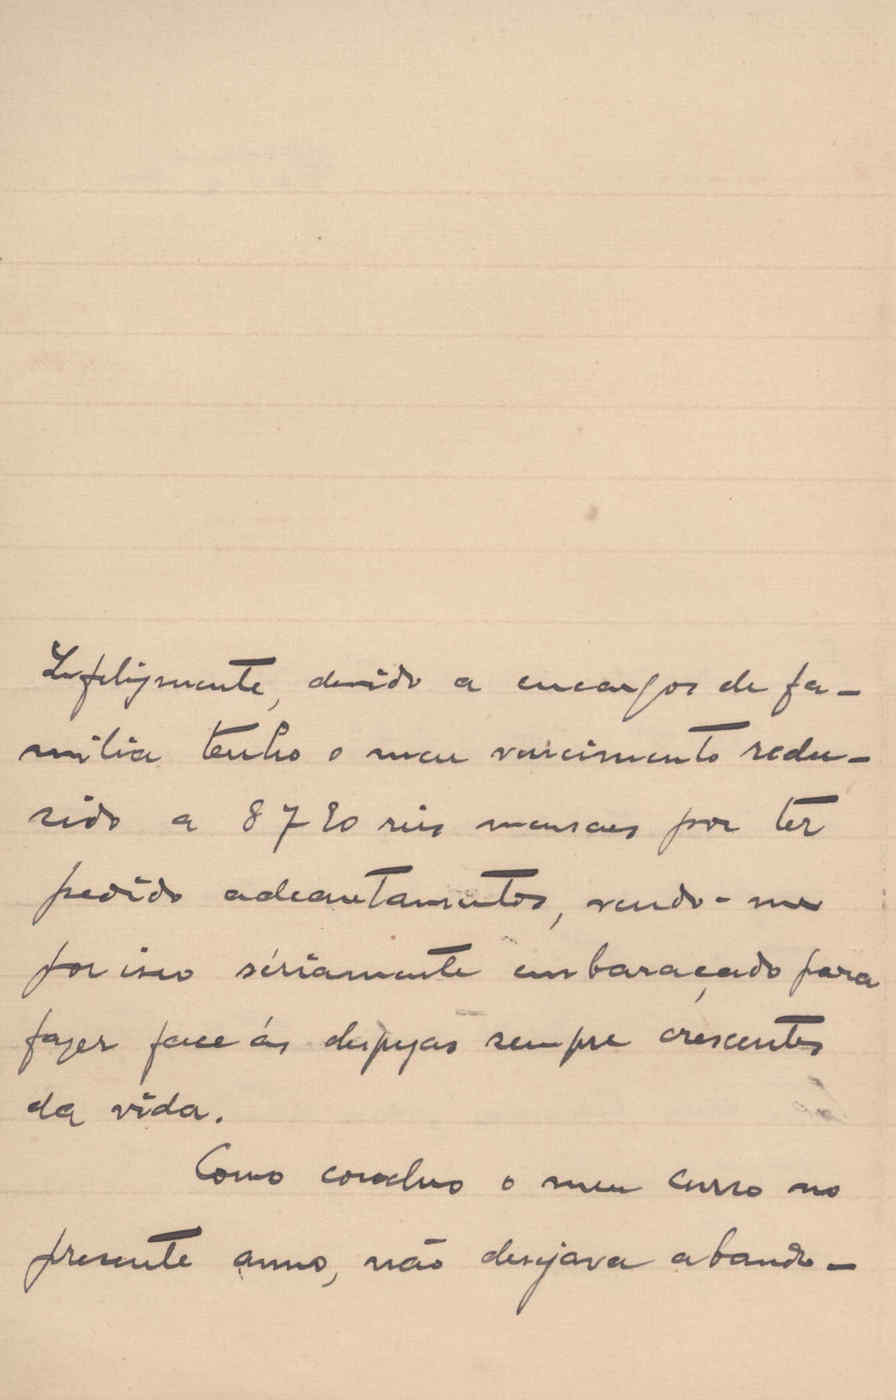 Infelizmente, devido a encargos de fa-
milia tenho o meu vencimento redu-
sido a 8720 reis mensaes por ter
pedido adeantamentos, vendo-me
por isso sériamente embaraçado para
fazer face ás despezas sempre crescentes
da vida.
Como concluo o meu curso no
presente anno, não desejava abando-